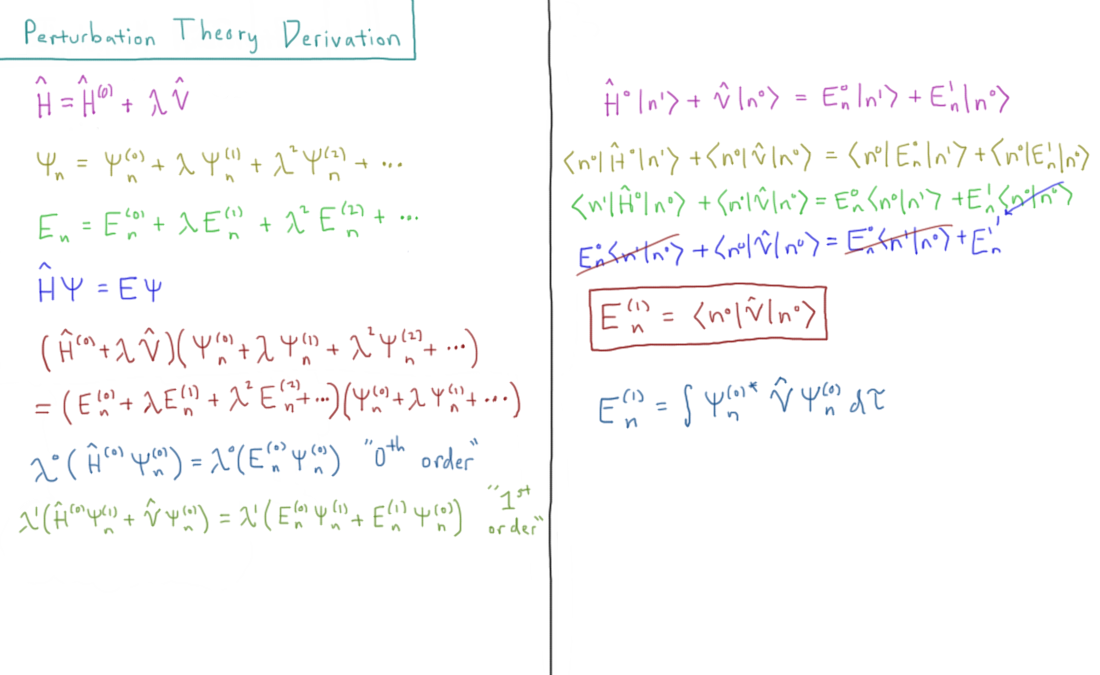 Perturbation Theory Derivation
Ĥ = Ĥ⁽⁰⁾ + λV̂
Ψₙ = Ψₙ⁽⁰⁾ + λΨₙ⁽¹⁾ + λ²Ψₙ⁽²⁾ + ...
Eₙ = Eₙ⁽⁰⁾ + λEₙ⁽¹⁾ + λ²Eₙ⁽²⁾ + ...
ĤΨ = EΨ
(Ĥ⁽⁰⁾ + λV̂)(Ψₙ⁽⁰⁾ + λΨₙ⁽¹⁾ + λ²Ψₙ⁽²⁾ + ...)
= (Eₙ⁽⁰⁾ + λEₙ⁽¹⁾ + λ²Eₙ⁽²⁾ + ...)(Ψₙ⁽⁰⁾ + λΨₙ⁽¹⁾ + ...)
λ⁰(Ĥ⁽⁰⁾Ψₙ⁽⁰⁾) = λ⁰(Eₙ⁽⁰⁾Ψₙ⁽⁰⁾) "0th order"
λ¹(Ĥ⁽⁰⁾Ψₙ⁽¹⁾ + V̂Ψₙ⁽⁰⁾) = λ¹(Eₙ⁽⁰⁾Ψₙ⁽¹⁾ + Eₙ⁽¹⁾Ψₙ⁽⁰⁾) "1st
order"
Ĥ⁰|n¹⟩ + V̂|n⁰⟩ = Eₙ⁰|n¹⟩ + Eₙ¹|n⁰⟩
⟨n⁰|Ĥ⁰|n¹⟩ + ⟨n⁰|V̂|n⁰⟩ = ⟨n⁰|Eₙ⁰|n¹⟩ + ⟨n⁰|Eₙ¹|n⁰⟩
⟨n¹|Ĥ⁰|n⁰⟩ + ⟨n⁰|V̂|n⁰⟩ = Eₙ⁰⟨n⁰|n¹⟩ + Eₙ¹⟨n⁰|n⁰⟩ 1
Eₙ⁰⟨n¹|n⁰⟩ + ⟨n⁰|V̂|n⁰⟩ = Eₙ⁰⟨n¹|n⁰⟩ + Eₙ¹
Eₙ⁽¹⁾ = ⟨n⁰|V̂|n⁰⟩
Eₙ⁽¹⁾ = ∫ Ψₙ⁽⁰⁾* V̂ Ψₙ⁽⁰⁾ dτ